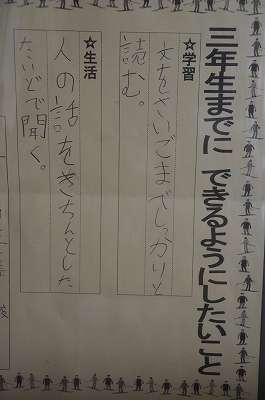 三年生までに できるようにしたいこと
☆学習
文をさいごまでしっかりと
読む。
☆生活
人の話をきちんとした
たいどで聞く。